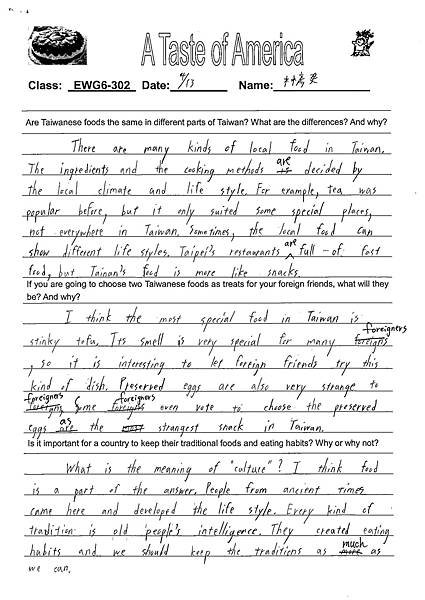 A Taste of America
Class: EWG6-302 Date: 4/13 Name:
Are Taiwanese foods the same in different parts of Taiwan? What are the differences? And why?
There are many kinds of local food in Taiwan.
The ingredients and the cooking methods are decided by
the local climate and life style. For example, tea was
popular before, but it only suited some special places,
not everywhere in Taiwan. Sometimes, the local food can
show different life styles. Taipei's restaurants are full of fast
food, but Tainan's food is more like snacks.
If you are going to choose two Taiwanese foods as treats for your foreign friends, what will they
be? And why?
I think the most special food in Taiwan is
stinky tofu. Its smell is very special for many foreigners
, so it is interesting to let foreign friends try this
kind of dish. Preserved eggs are also very strange to
foreigners Some foreigners even vote to choose the preserved
eggs as the strangest snack in Taiwan.
Is it important for a country to keep their traditional foods and eating habits? Why or why not?
What is the meaning of "culture"? I think food
is a part of the answer. People from ancient times
came here and developed the life style. Every kind of
tradition is old people's intelligence. They created eating
habits and we should keep the traditions as much as
we can.